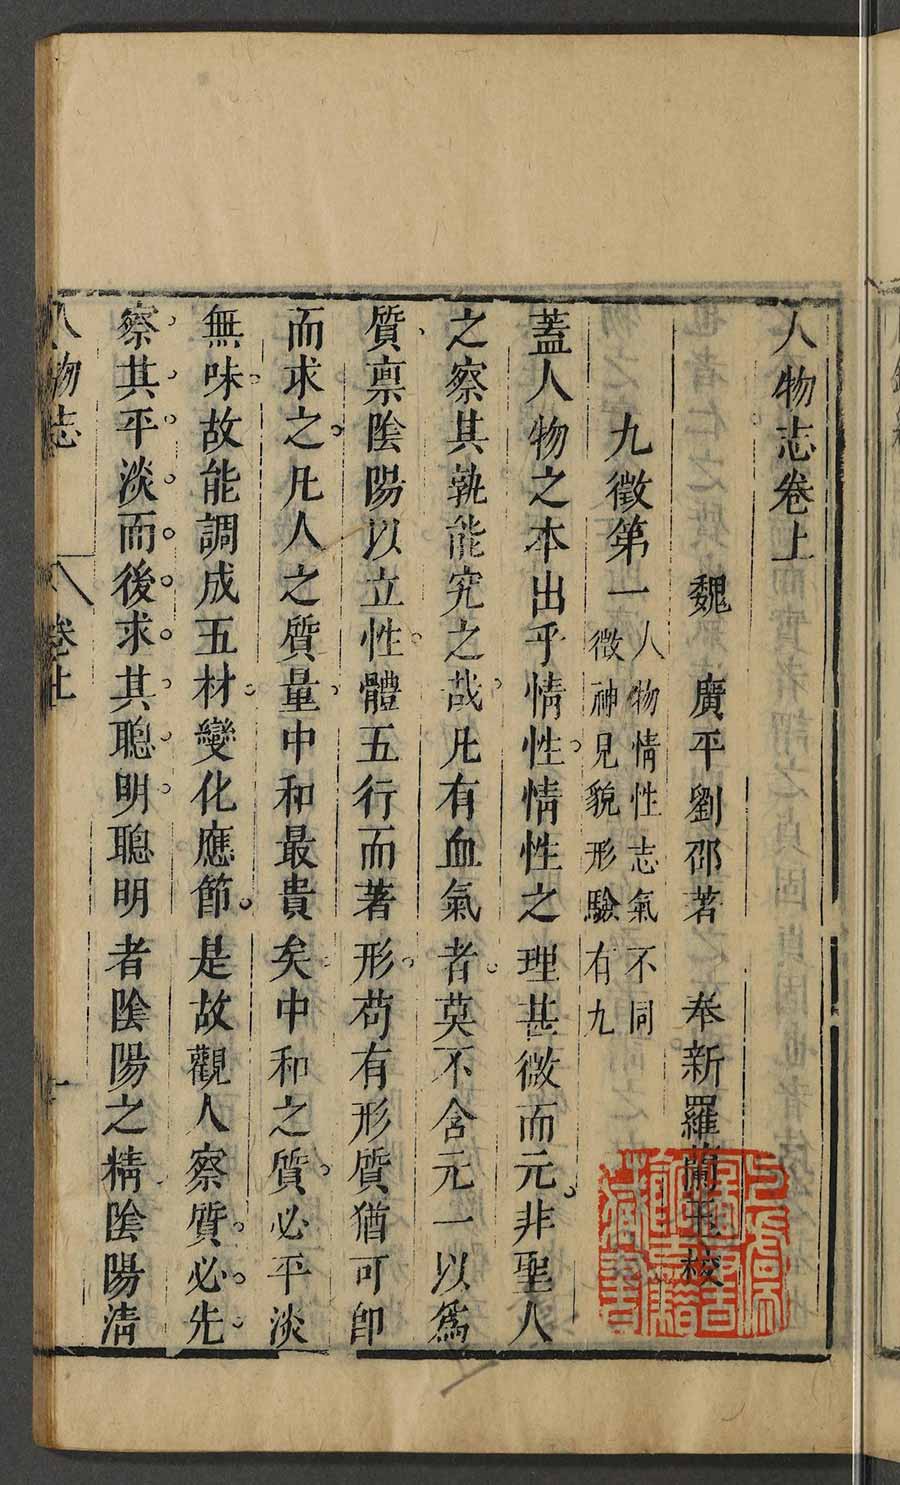 人物志卷上
魏　廣平劉邵著　奉新羅蘭玉校
九徵第一
人物情性志氣不同
徵神見貌形驗有九
蓋人物之本出乎情性情性之理甚微而元非聖人
之察其孰能究之哉凡有血氣者莫不含元一以爲
質禀陰陽以立性體五行而著形苟有形質猶可即
而求之凡人之質量中和最貴矣中和之質必平淡
無味故能調成五材變化應節是故觀人察質必先
察其平淡而後求其聰明聰明者陰陽之精陰陽清
人物志　卷上　一